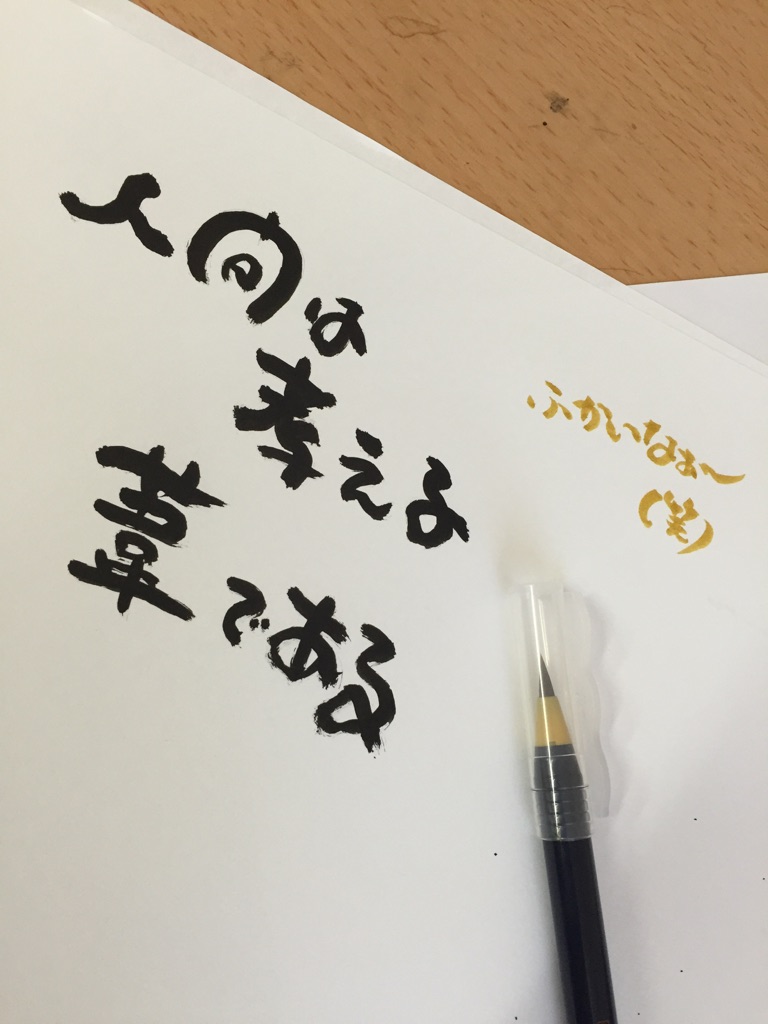 人間は
考える
葦である
ふかいなぁ〜
(笑)